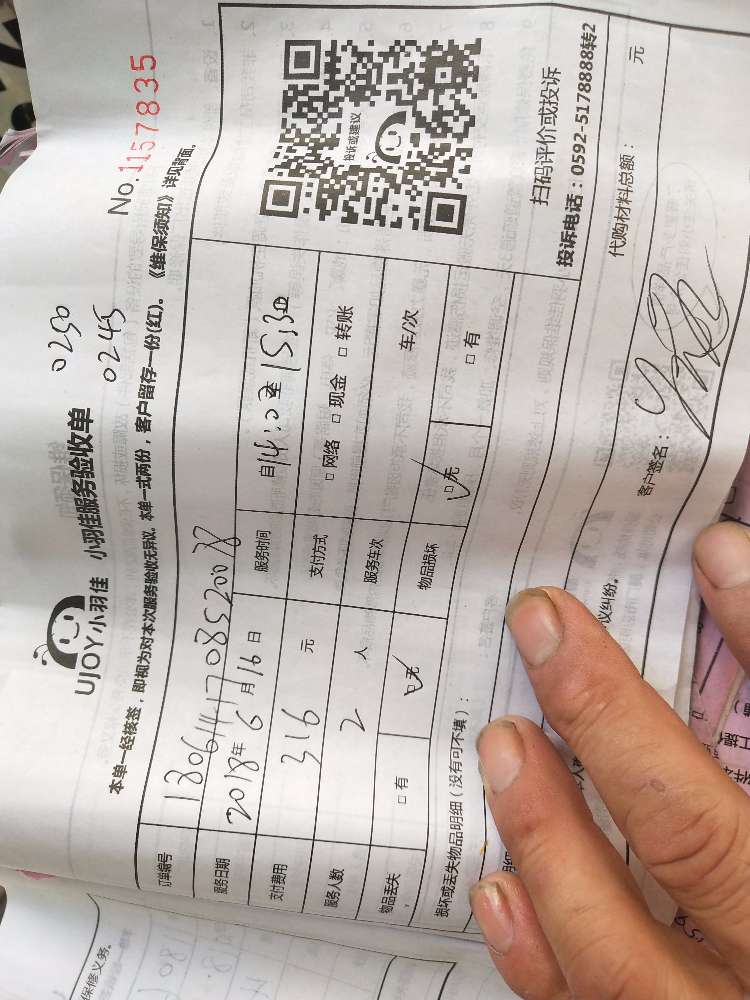 UJOY小羽佳 小羽佳服务验收单
0250
0245
No.1157835
本单一经核签，即视为对本次服务验收无异议。本单一式两份，客户留存一份(红)。《维保须知》详见背面。
订单编号 1806141708520078
服务日期 2018年6月16日 服务时间 自14:0至15:30
支付费用 316 元 支付方式 □网络 □现金 □转账
服务人数 2 人 服务车次 车/次
物品丢失 □有 □无 物品损坏 □无 □有
投诉或建议
扫码评价或投诉
投诉电话：0592-5178888转2
损坏或丢失物品明细（没有可不填）：
代购材料总额： 元
议纠纷。
客户签名：
保修义务。